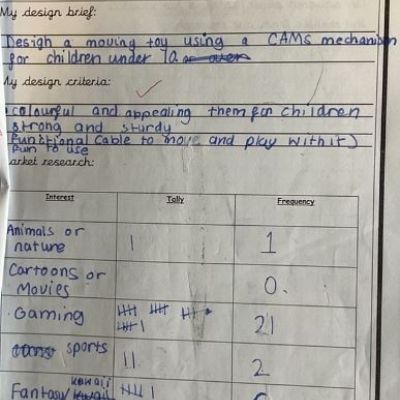 My design brief:
Design a moving toy using a CAMs mechanism
for children under 10 or over
My design criteria:
colourful and appealing them for children
strong and sturdy
Functional (able to move and play with it)
Fun to use
arket research:
Interest Tally Frequency
Animals or
nature | 1
Cartoons or
Movies 0.
Gaming 21
sports || 2
kawaii
Fantasy